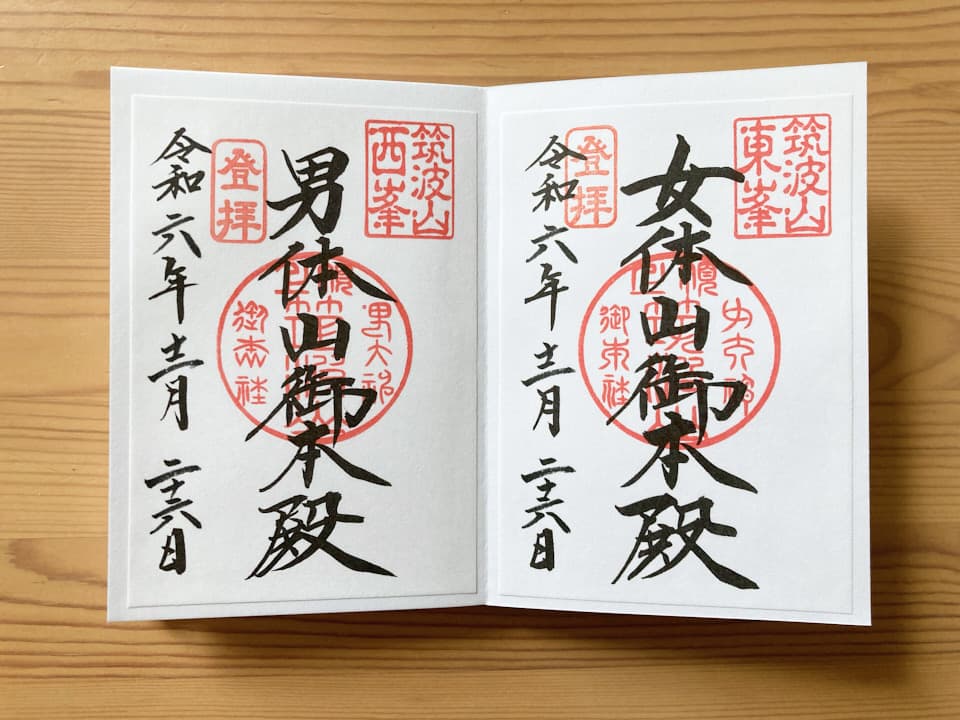 筑波山
東峯
女体山御本殿
御本社
登拝
令和六年十二月二十六日
筑波山
西峯
男体山御本殿
御本社
登拝
令和六年十二月二十六日